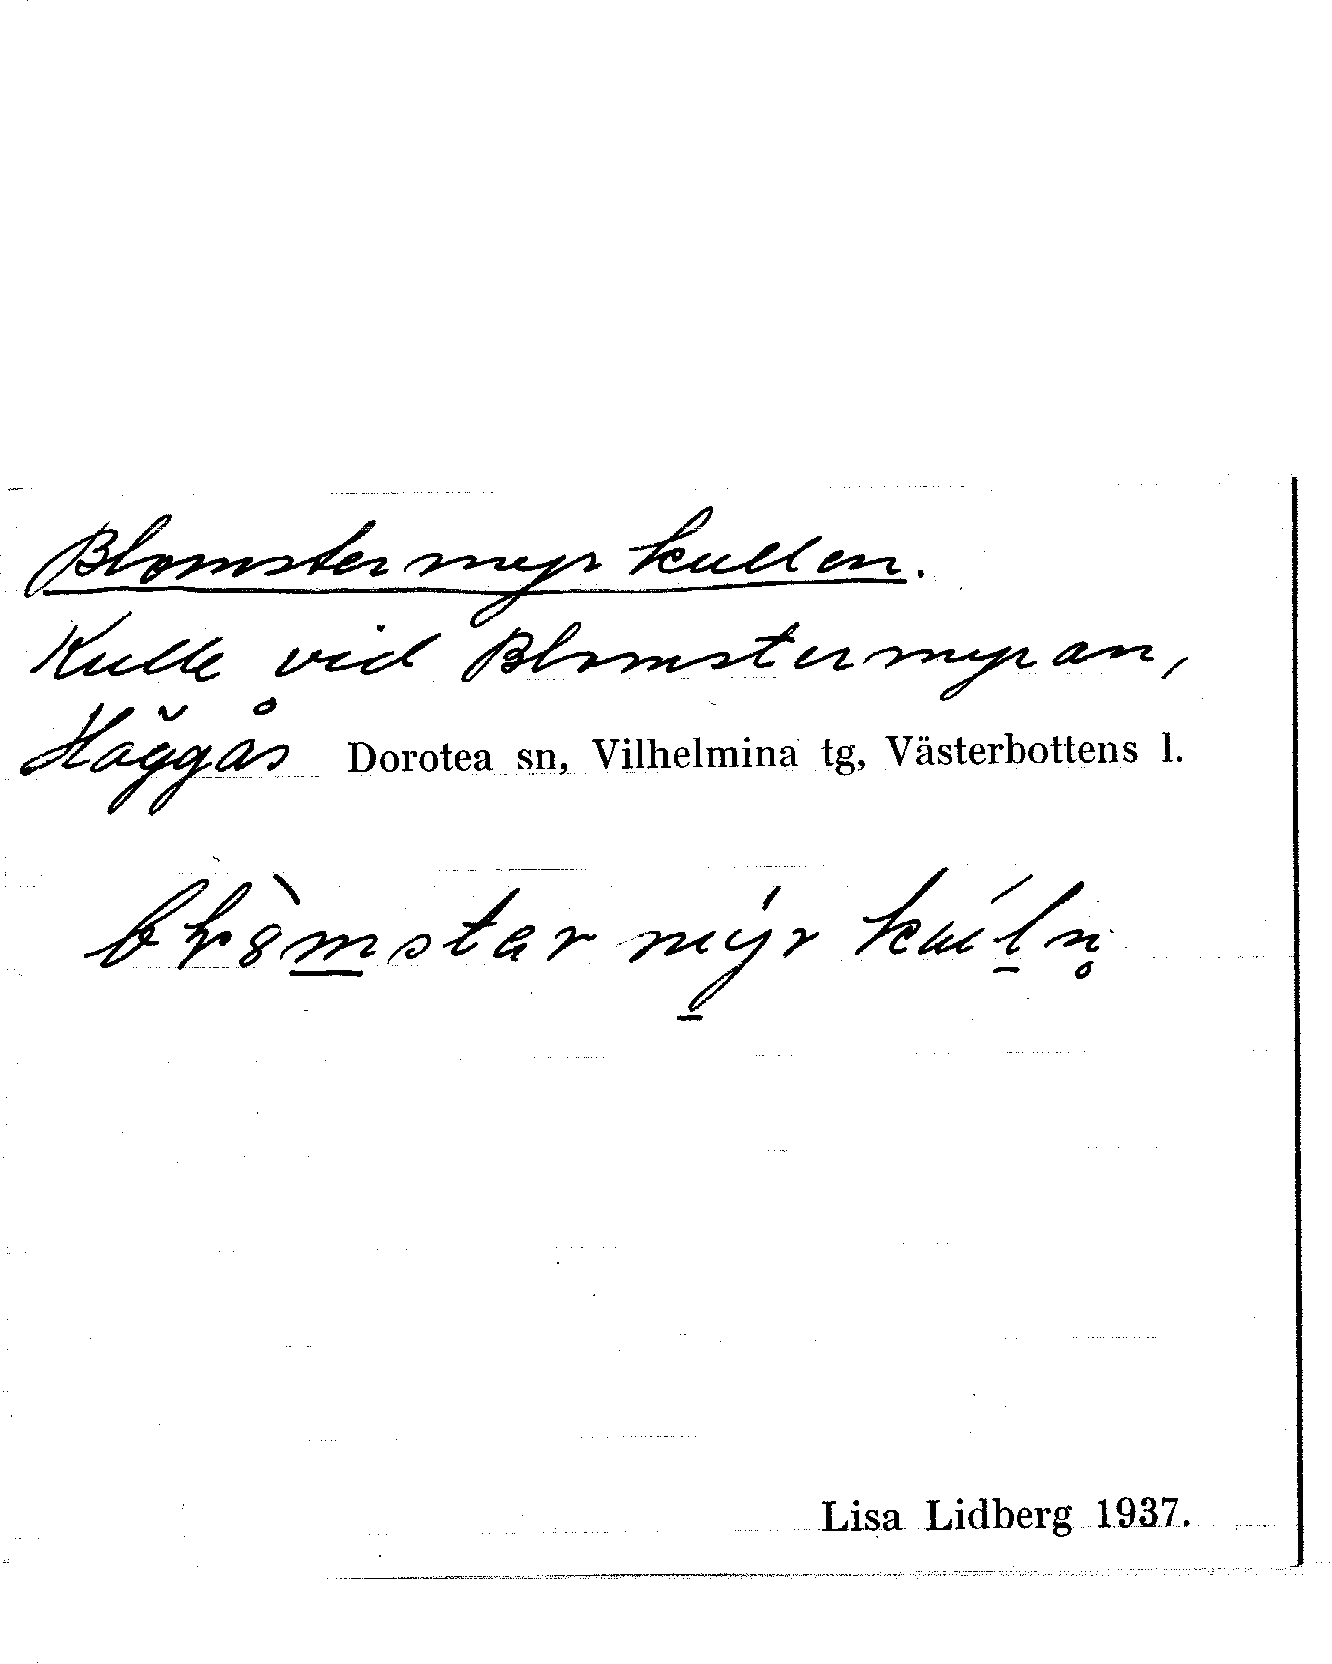 Blomstermyrkullen.
Kulle vid Blomstermyran,
Häggås Dorotea sn, Vilhelmina tg, Västerbottens l.
Lisa Lidberg 1937.